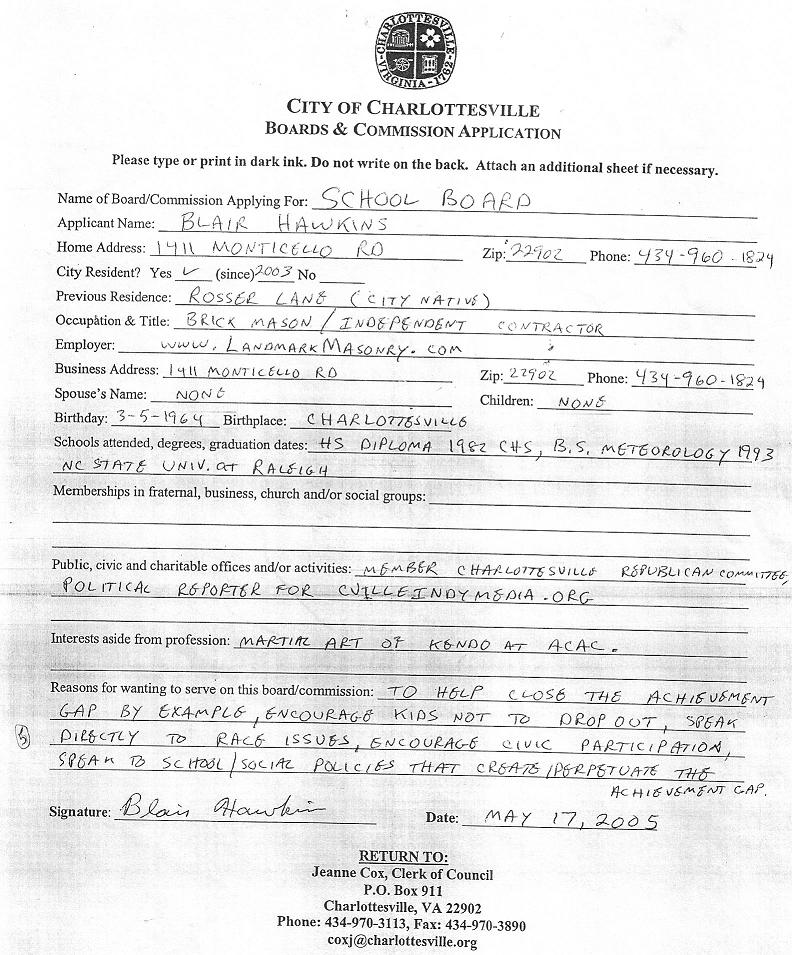 CHARLOTTESVILLE
VIRGINIA-1762
CITY OF CHARLOTTESVILLE
BOARDS & COMMISSION APPLICATION
Please type or print in dark ink. Do not write on the back. Attach an additional sheet if necessary.
Name of Board/Commission Applying For: SCHOOL BOARD
Applicant Name: BLAIR HAWKINS
Home Address: 1911 MONTICELLO RD Zip: 22902 Phone: 434-960-1824
City Resident? Yes ✓ (since) 2003 No
Previous Residence: ROSSER LANE (CITY NATIVE)
Occupation & Title: BRICK MASON / INDEPENDENT CONTRACTOR
Employer: WWW.LANDMARKMASONRY.COM
Business Address: 1911 MONTICELLO RD Zip: 22902 Phone: 434-960-1824
Spouse's Name: NONE Children: NONE
Birthday: 3-5-1964 Birthplace: CHARLOTTESVILLE
Schools attended, degrees, graduation dates: HS DIPLOMA 1982 CHS, B.S. METEOROLOGY 1993
NC STATE UNIV. at RALEIGH
Memberships in fraternal, business, church and/or social groups:
Public, civic and charitable offices and/or activities: MEMBER CHARLOTTESVILLE REPUBLICAN COMMITTEE,
POLITICAL REPORTER FOR CVILLEINDYMEDIA.ORG
Interests aside from profession: MARTIAL ART OF KENDO AT ACAC.
Reasons for wanting to serve on this board/commission: TO HELP CLOSE THE ACHIEVEMENT
GAP BY EXAMPLE, ENCOURAGE KIDS NOT TO DROP OUT, SPEAK
DIRECTLY TO RACE ISSUES, ENCOURAGE CIVIC PARTICIPATION,
SPEAK TO SCHOOL/SOCIAL POLICIES THAT CREATE/PERPETUATE THE
ACHIEVEMENT GAP.
Signature: Blair Hawkins Date: MAY 17, 2005
RETURN TO:
Jeanne Cox, Clerk of Council
P.O. Box 911
Charlottesville, VA 22902
Phone: 434-970-3113, Fax: 434-970-3890
coxj@charlottesville.org